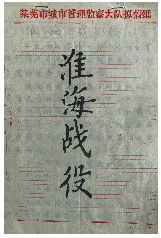 莱芜市城市管理监察大队拟签纸
淮海战役